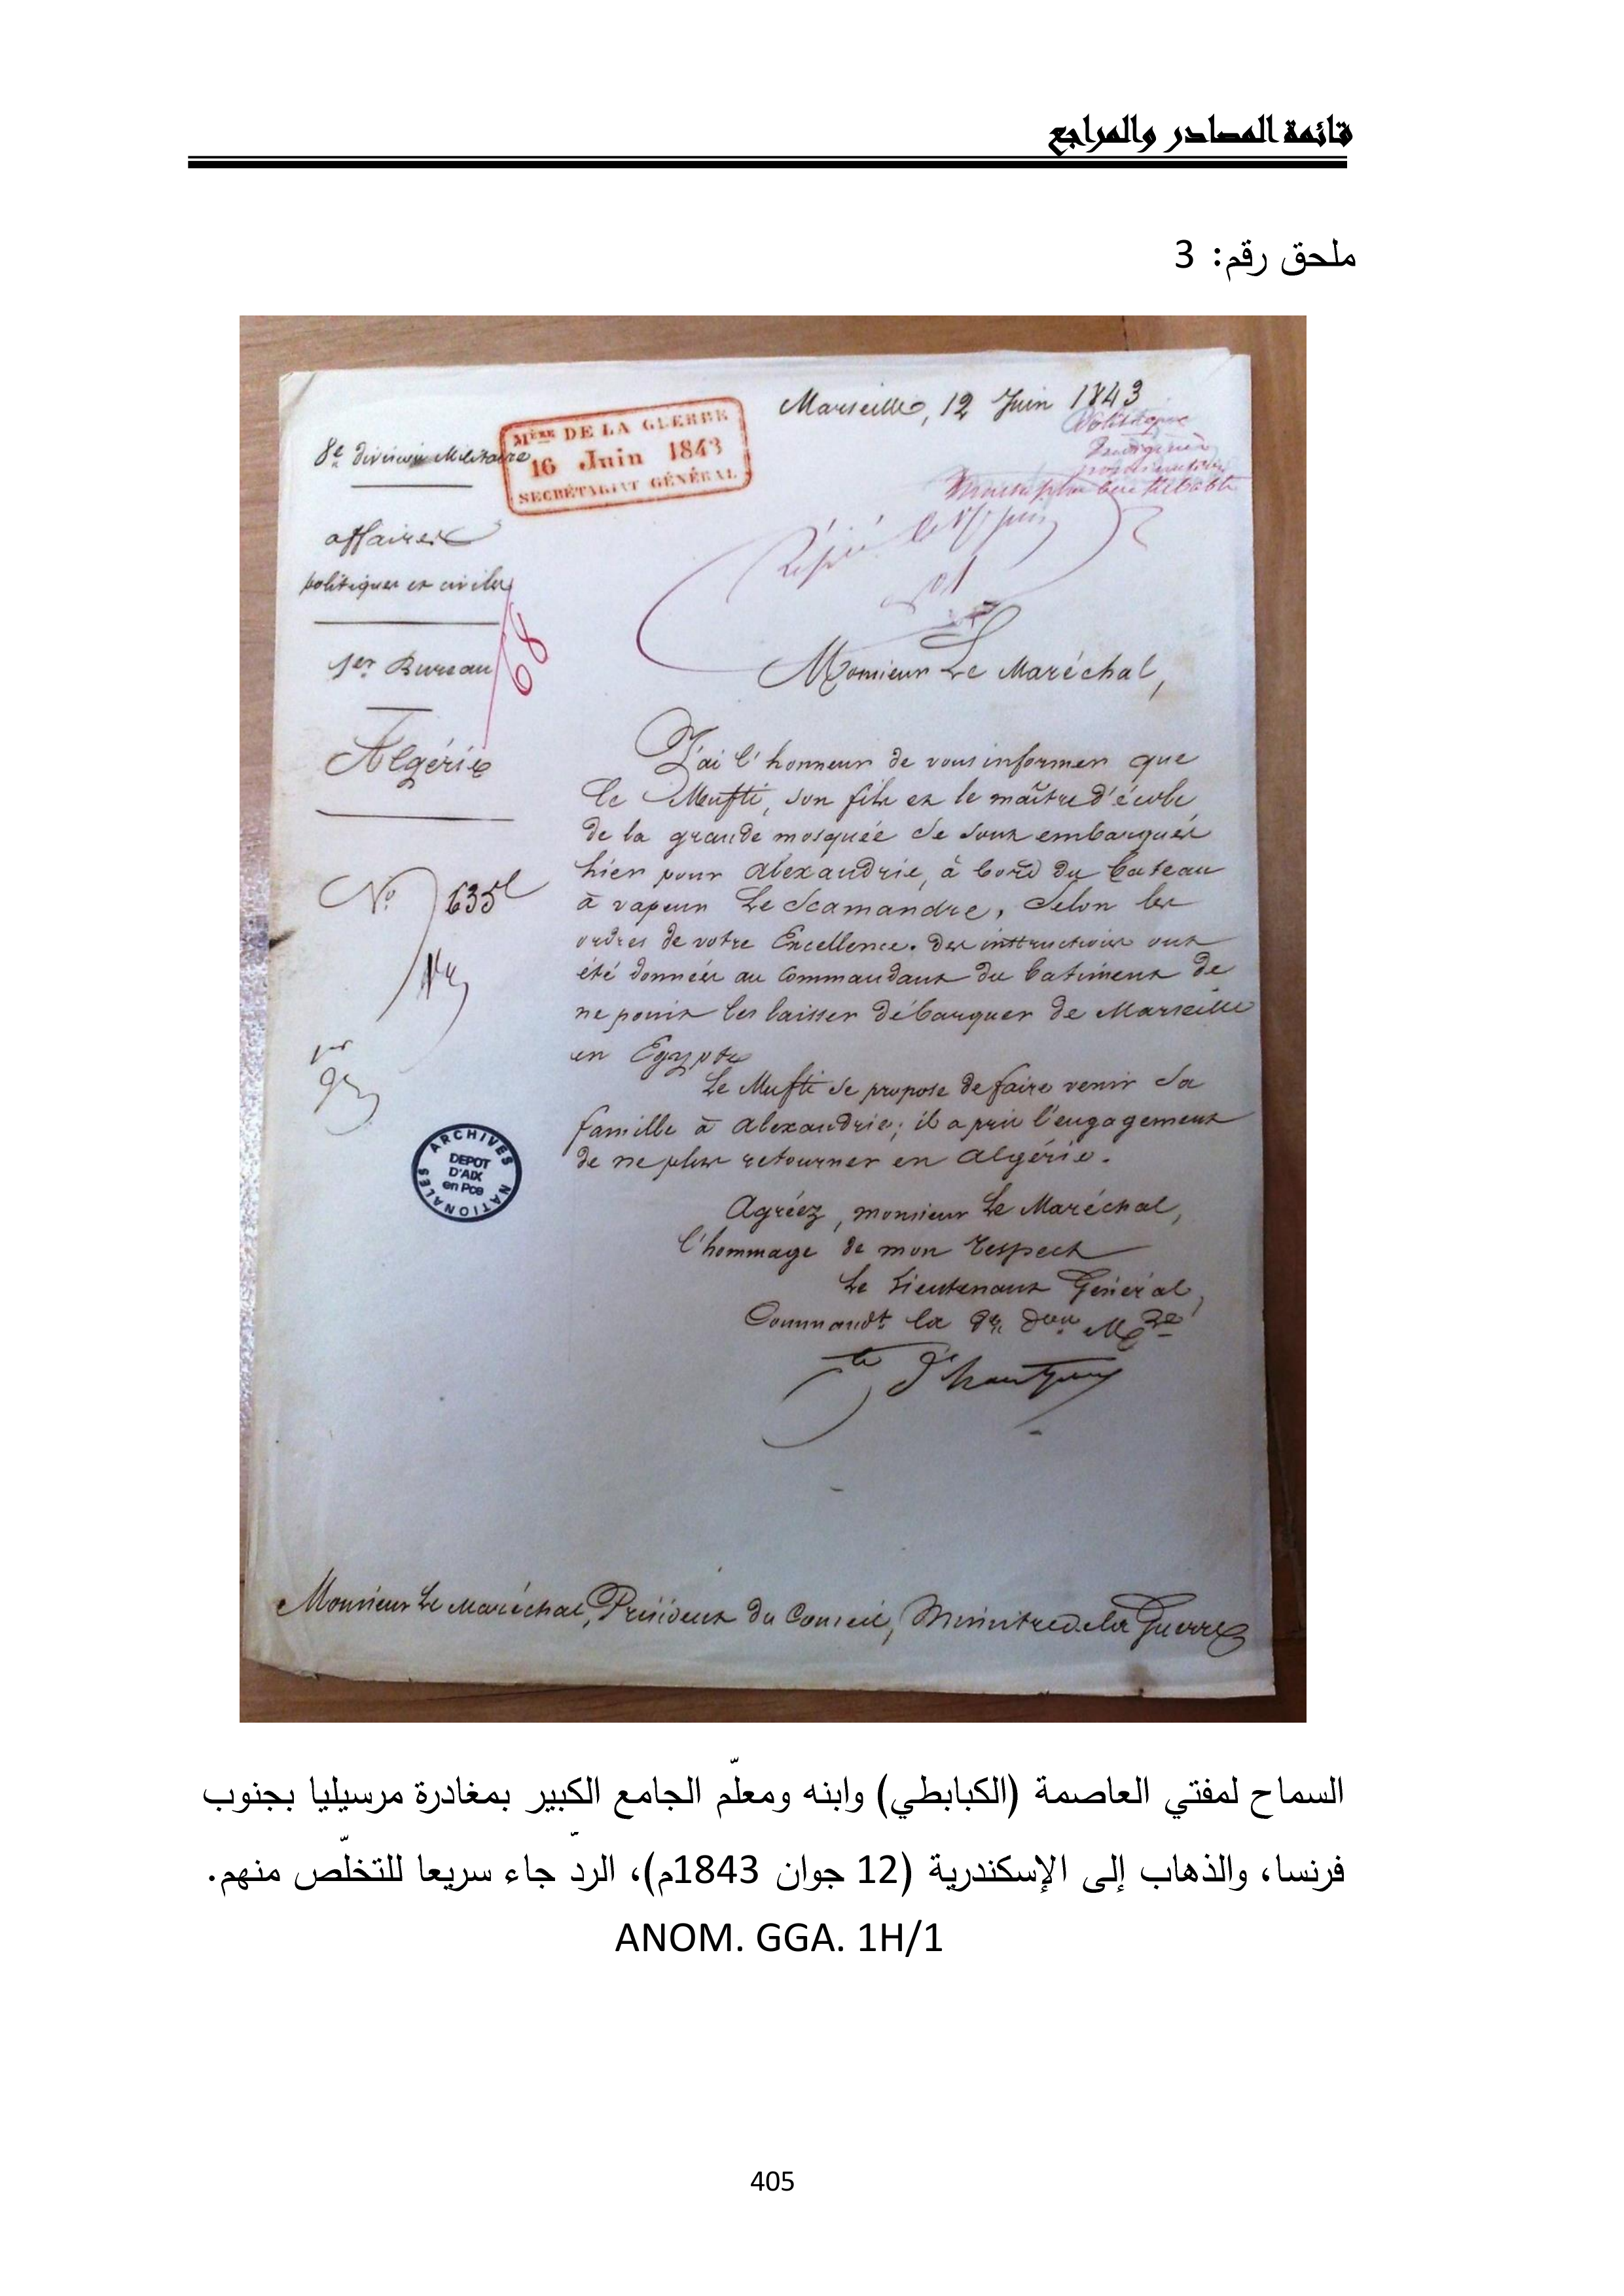 قائمة المصادر والمراجع
ملحق رقم: 3
Marseille, 12 Juin 1843
8e division Militaire
Mère DE LA GUERRE
16 Juin 1843
SECRÉTARIAT GÉNÉRAL
affaires
politiques et civiles
1er Bureau
68
Algérie
Monsieur Le Maréchal,
J'ai l'honneur de vous informer que
le Mufti, son fils et le maître d'école
de la grande mosquée se sont embarqués
hier pour Alexandrie, à bord du bateau
à vapeur Le Scamandre, selon les
ordres de votre Excellence. des instructions ont
été données au Commandant du batiment de
ne point les laisser débarquer de Marseille
en Egypte
Le Mufti se propose de faire venir sa
famille à Alexandrie; il a pris l'engagement
de ne plus retourner en Algérie.
No 635
ARCHIVES NATIONALES
DEPOT
D'AIX
en Pce
Agréez, monsieur Le Maréchal,
l'hommage de mon respect
Le Lieutenant Général,
Commandt la 8e Don Mre
Monsieur Le Maréchal, Président du Conseil, Ministre de la Guerre
السماح لمفتي العاصمة (الكبابطي) وابنه ومعلّم الجامع الكبير بمغادرة مرسيليا بجنوب
فرنسا، والذهاب إلى الإسكندرية (12 جوان 1843م)، الردّ جاء سريعا للتخلّص منهم.
ANOM. GGA. 1H/1
405